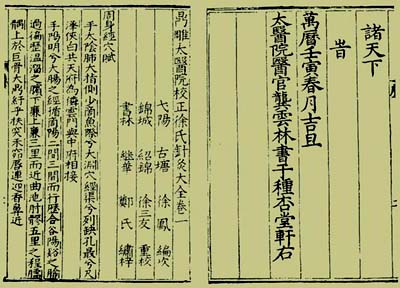 諸天下
旹
萬曆壬寅春月吉旦
太醫院醫官龔雲林書于種杏堂軒右
鼎雕太醫院校正徐氏針灸大全卷一
弋陽 古塘 徐鳳 編次
錦城 紹錦 徐三友 重校
書林 繼華 鄭氏 繡梓
周身經穴賦
手太陰肺大指側少商魚際兮太淵穴經渠兮列缺孔最兮尺
澤俠白共天府為儔雲門與中府相接
手陽明兮大腸之經循商陽二間三間而行歷合谷陽谿之腧
過徧歷溫溜之 下廉上廉三里而近曲池肘髎五里之程臑
髃上於巨骨天鼎紆乎扶突禾窌唇連迎香鼻近